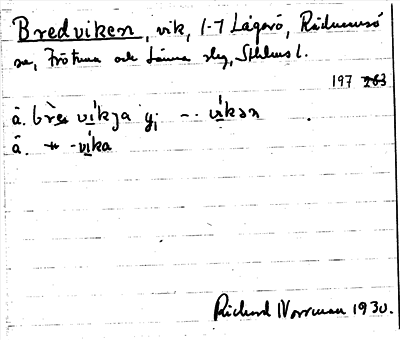 Bredviken, vik, 1-7 Lågarö, Rådmansö
sn, Frötuna och Länna slg, Sthlms l.
197 263
å. brès vikja y; -- vikən
å. + -vika
Richard Norrman 1930.